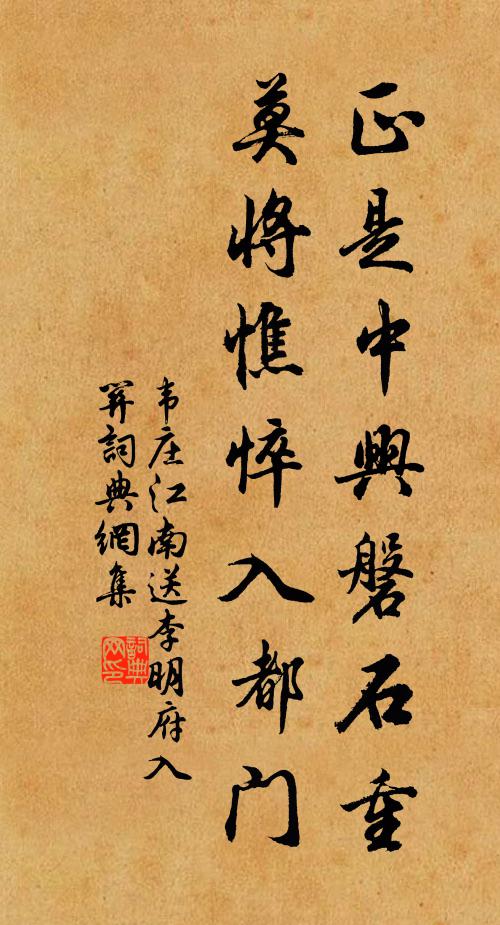 正是中興磐石重
莫將憔悴入都门
韦庄江南送李明府入
关詞典網集
詞典网印